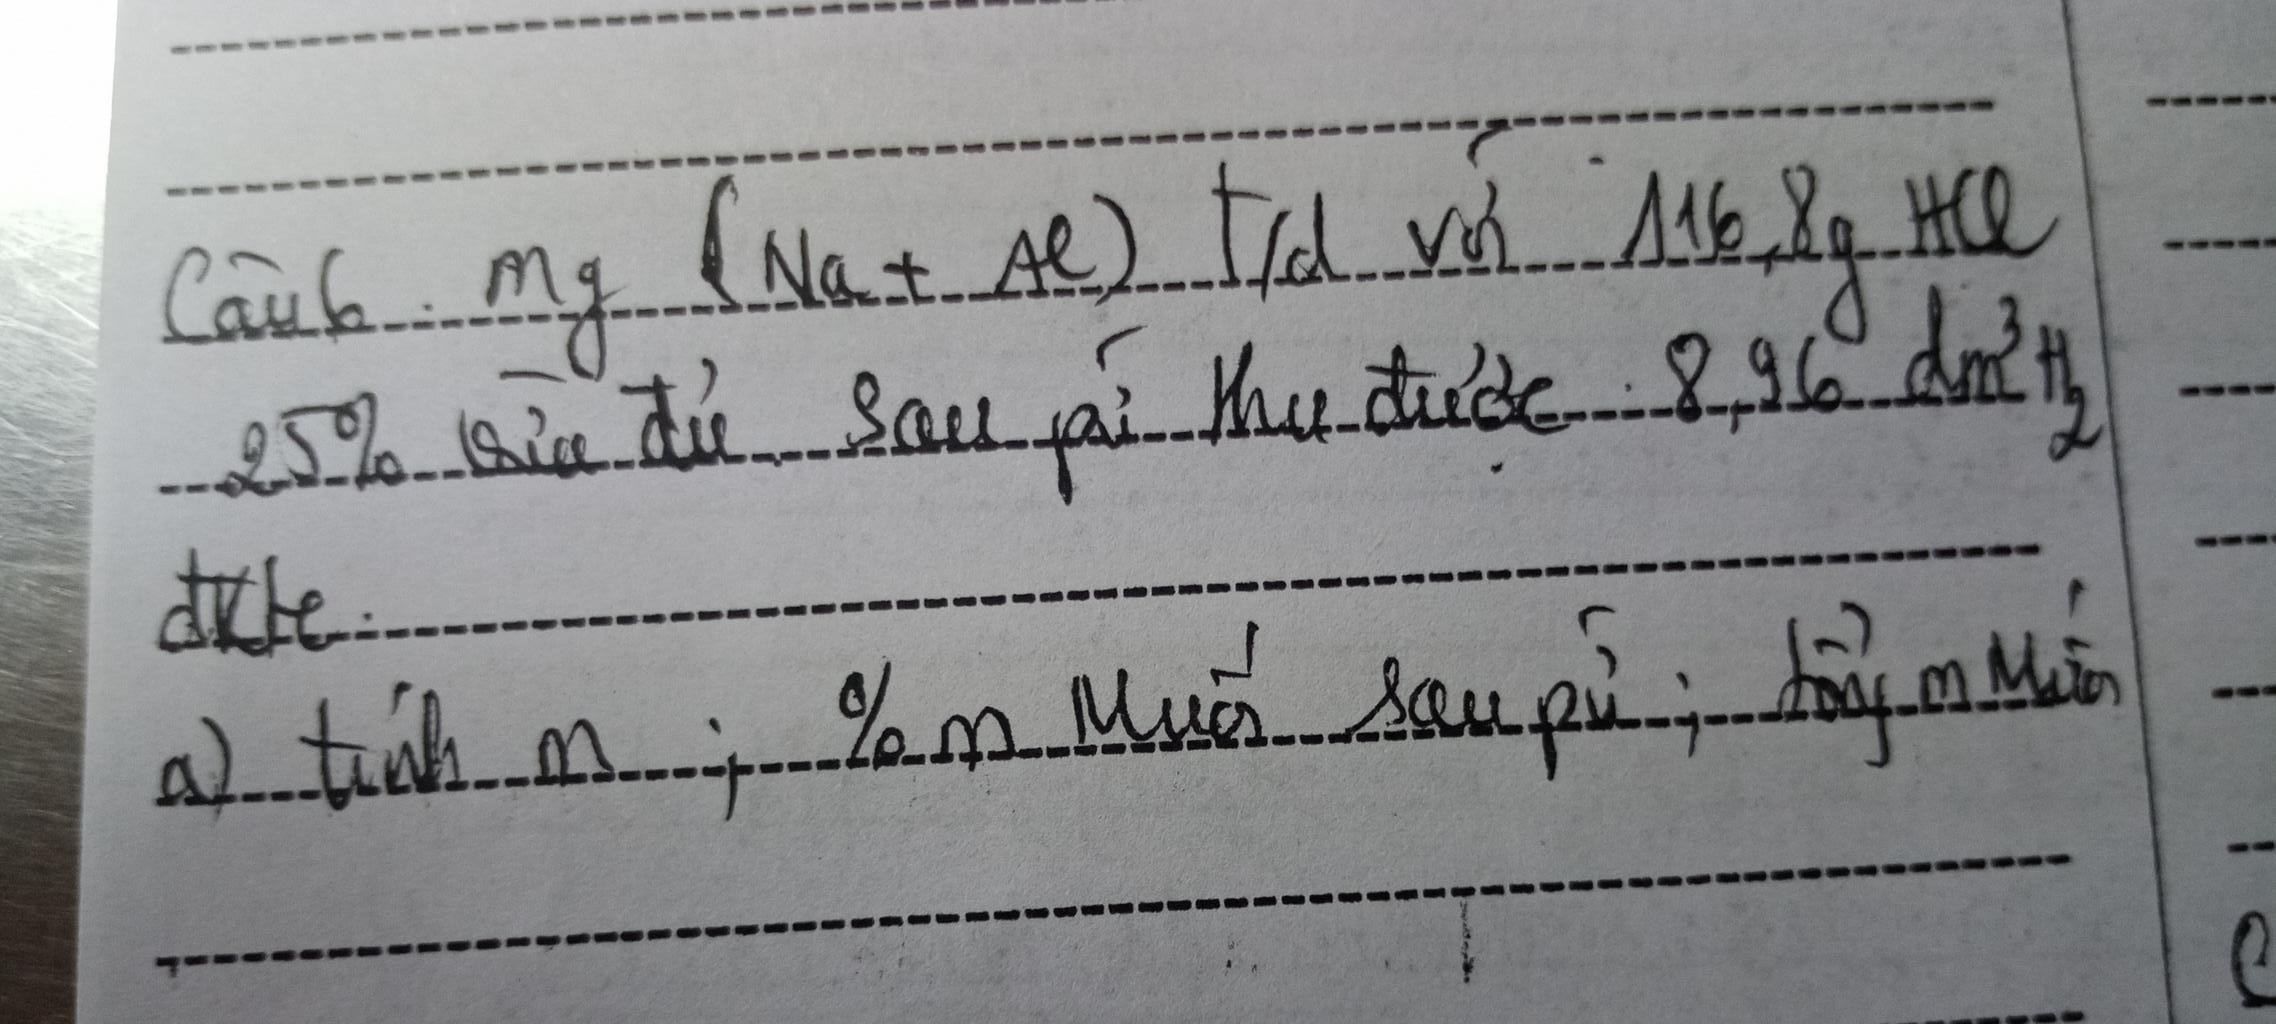 Câu 6. mg (Na + Al) T/d với 116,8g HCl
25% vừa đủ sau pứ thu được 8,96 dm³ H₂
đktc.
a) tính m ; %m Muối sau pứ ; tổng m Muối
C